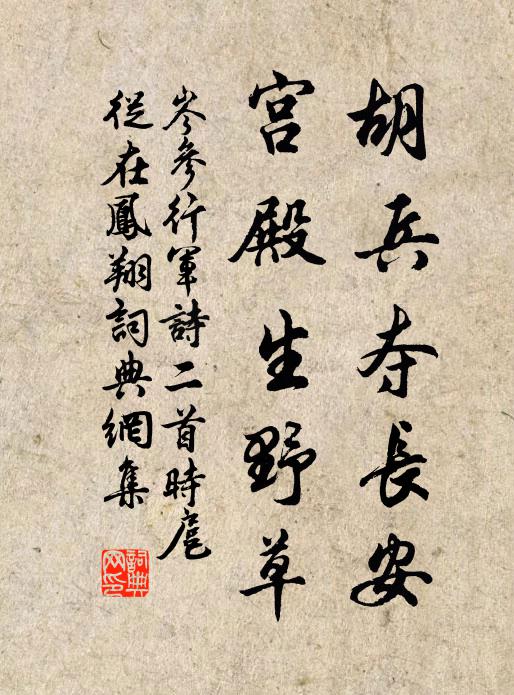 胡兵夺長安
宫殿生野草
岑參行軍詩二首時扈
從在鳳翔詞典網集
詞典
网印